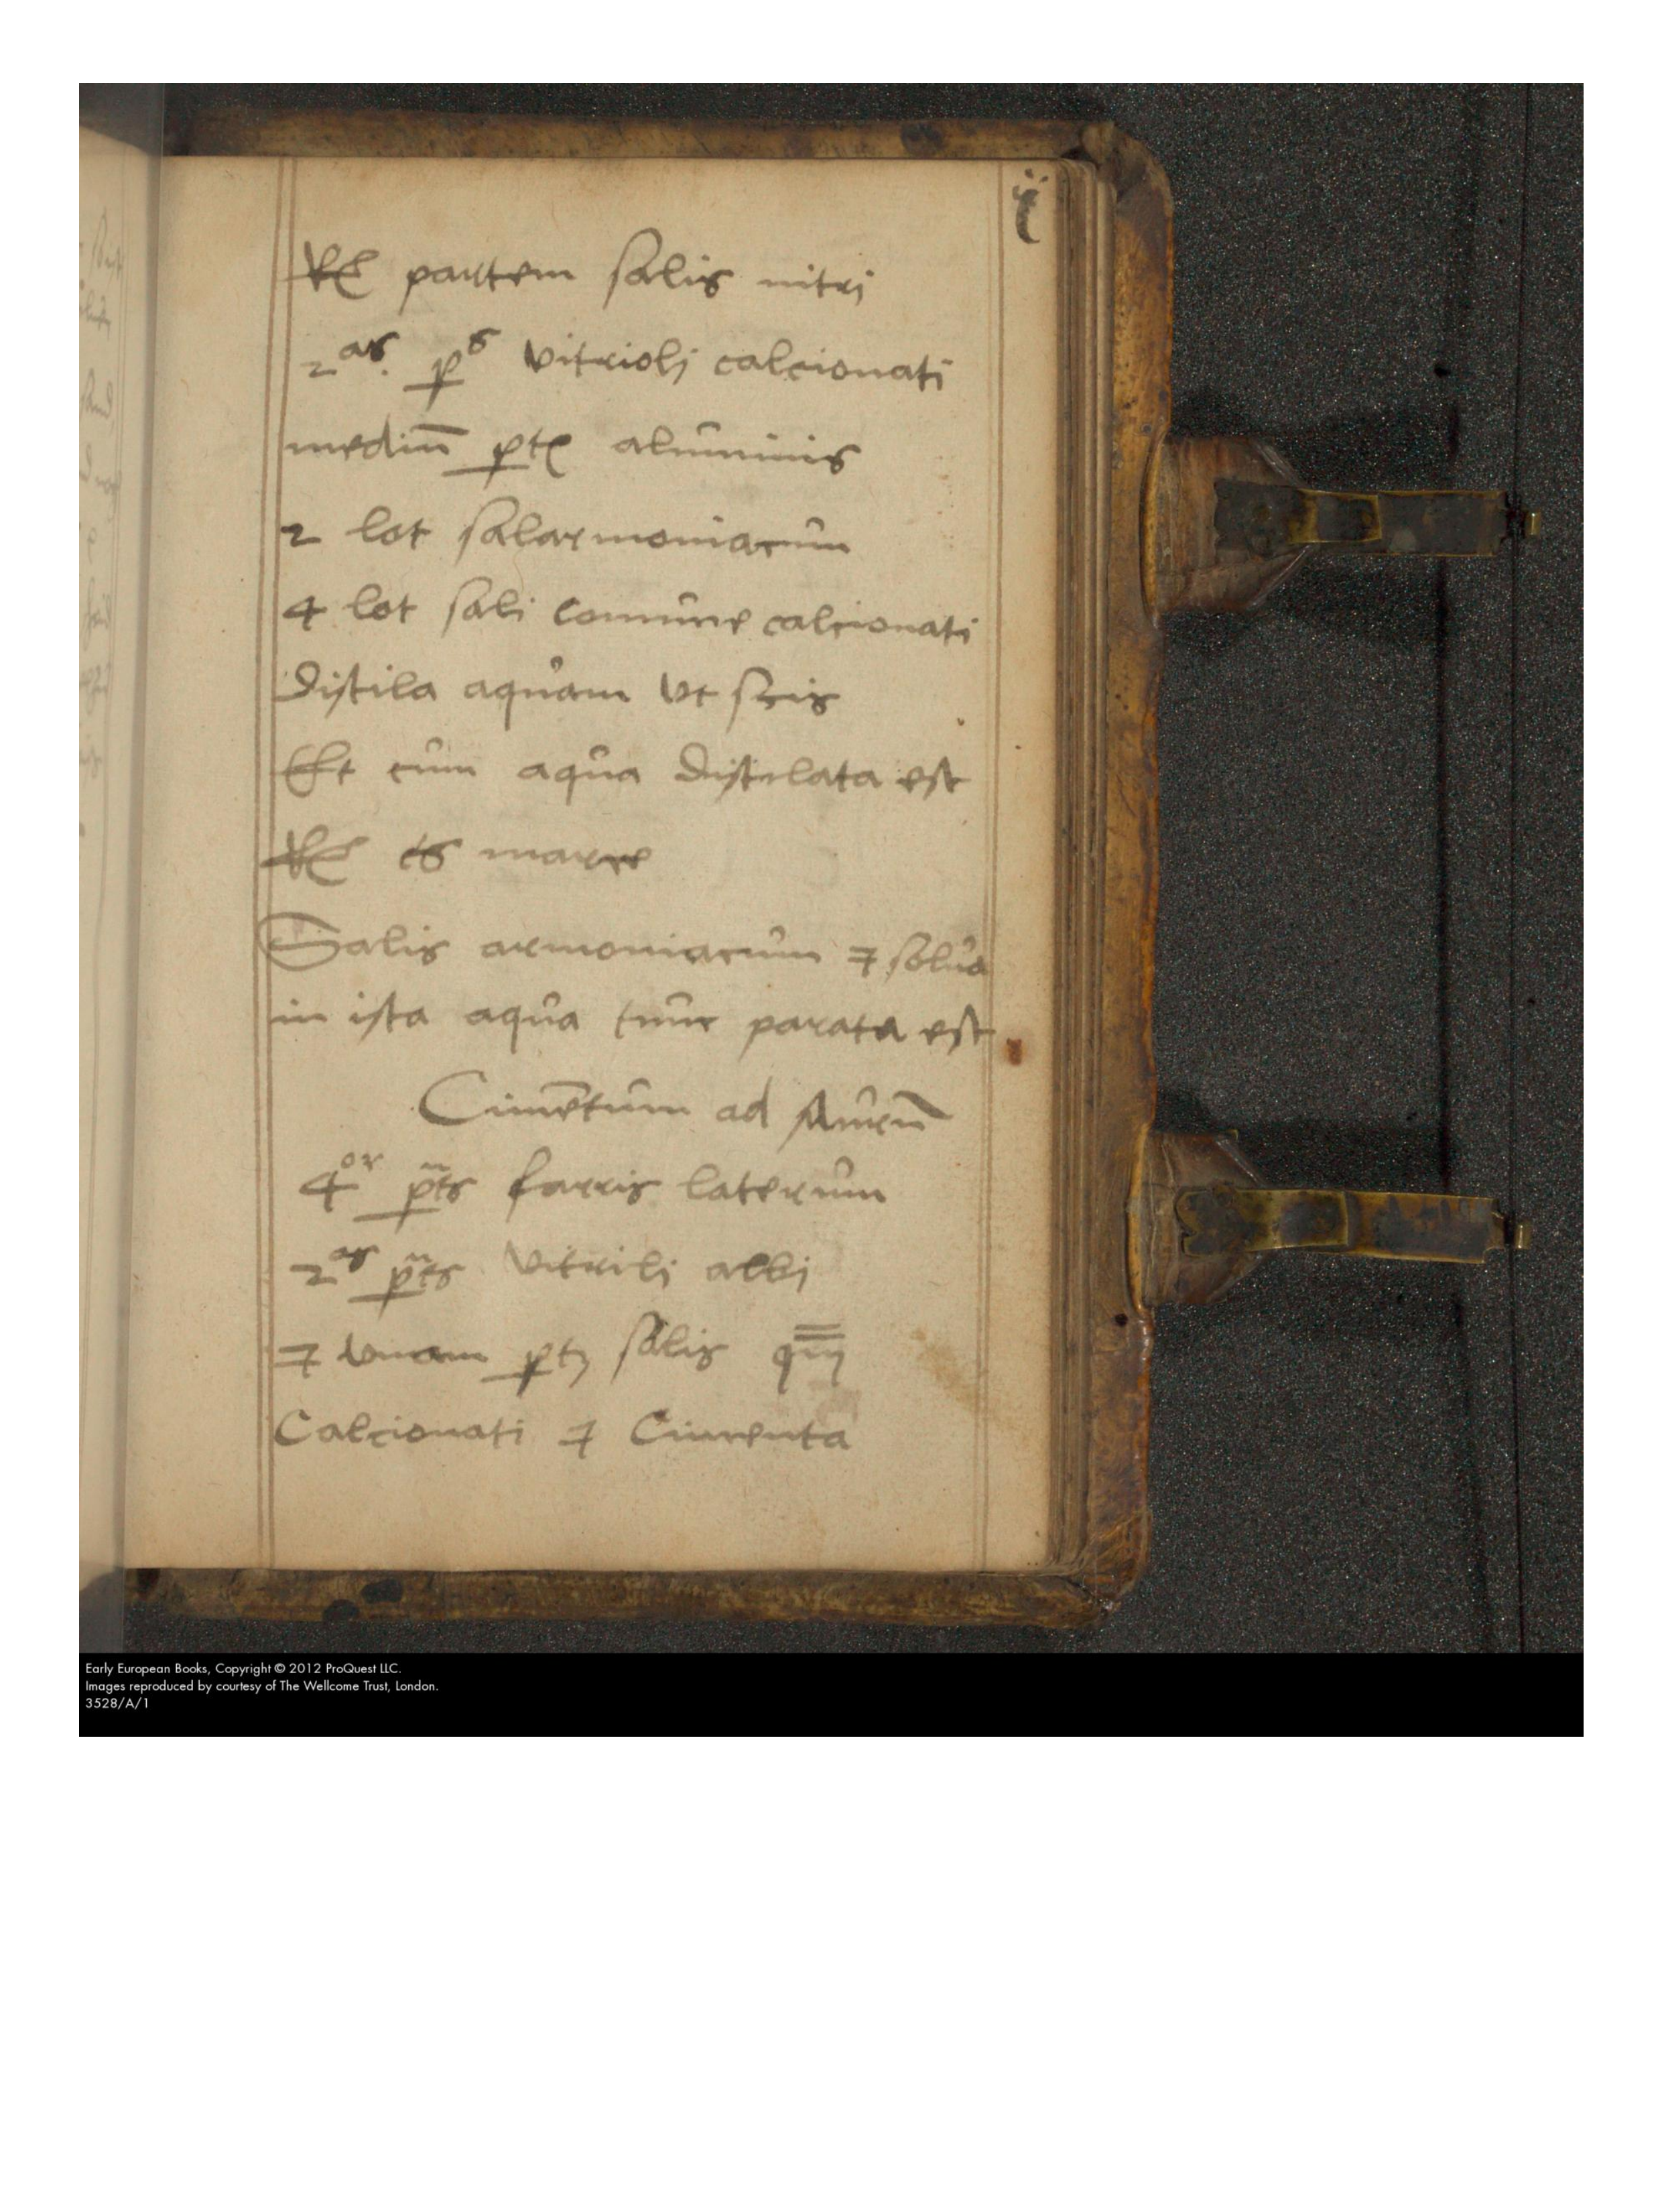 ij
Rec partem salis nitri
2as. ps vitriolj calcionati
mediū pte aluminis
2 lot salarmoniacum
4 lot sali comune calcionati
Distila aquam vt scis
Et cum aqua distelata est
Rec
Salis armoniacum ⁊ solua
in ista aqua tunc parata est
Cimētum ad
4or p̃ts farris laterum
2as p̃ts vitrilj albj
⁊ vnam ptʒ salis
Calcionati ⁊ Cimenta
Early European Books, Copyright © 2012 ProQuest LLC.
Images reproduced by courtesy of The Wellcome Trust, London.
3528/A/1